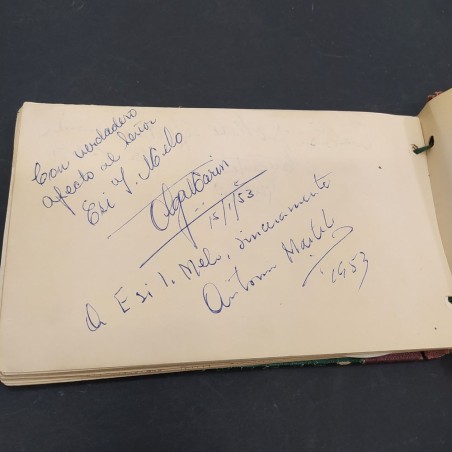 Con verdadero
afecto al Señor
Esi J. Melo
Olga
15/1/53
A Esi J. Melo, sinceramente
1953